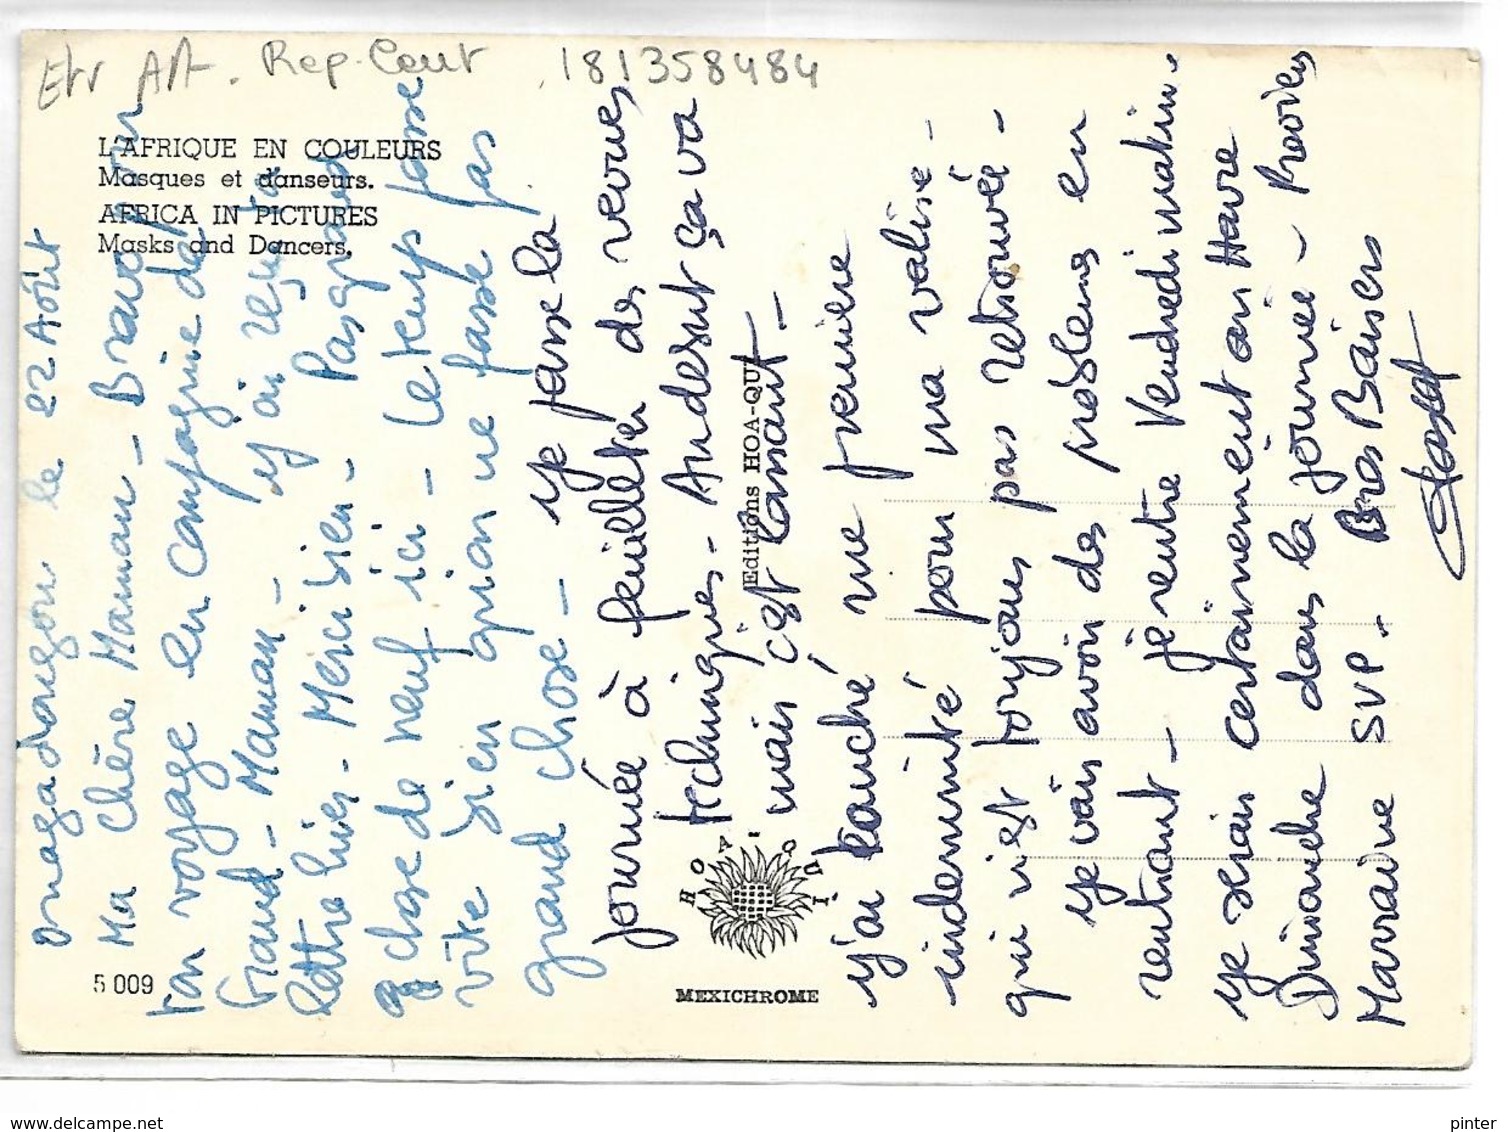 Etr Afr. Rep. Cent 181358484
L'AFRIQUE EN COULEURS
Masques et danseurs.
AFRICA IN PICTURES
Masks and Dancers.
5 009
Editions HOA-QUI
HOA-QUI
MEXICHROME
Ouagadougou le 22 Août
Ma chère Maman - Bravo pour
ton voyage en compagnie de
Grand-Maman - j'ai reçu ta
lettre hier - Merci bien - Pas grand
chose de neuf ici - Le temps passe
vite bien qu'on ne fasse pas
grand chose - je passe la
journée à feuilleter des revues
techniques - Au dessert ça va
mais c'est lamant -
j'ai touché une première
indemnité pour ma valise -
qui n'est toujours pas retrouvée -
je vais avoir des problèmes en
rentrant - je rentre Vendredi matin.
je serai certainement au Havre
Dimanche dans la journée - Préviens
Marraine SVP. Gros Baisers